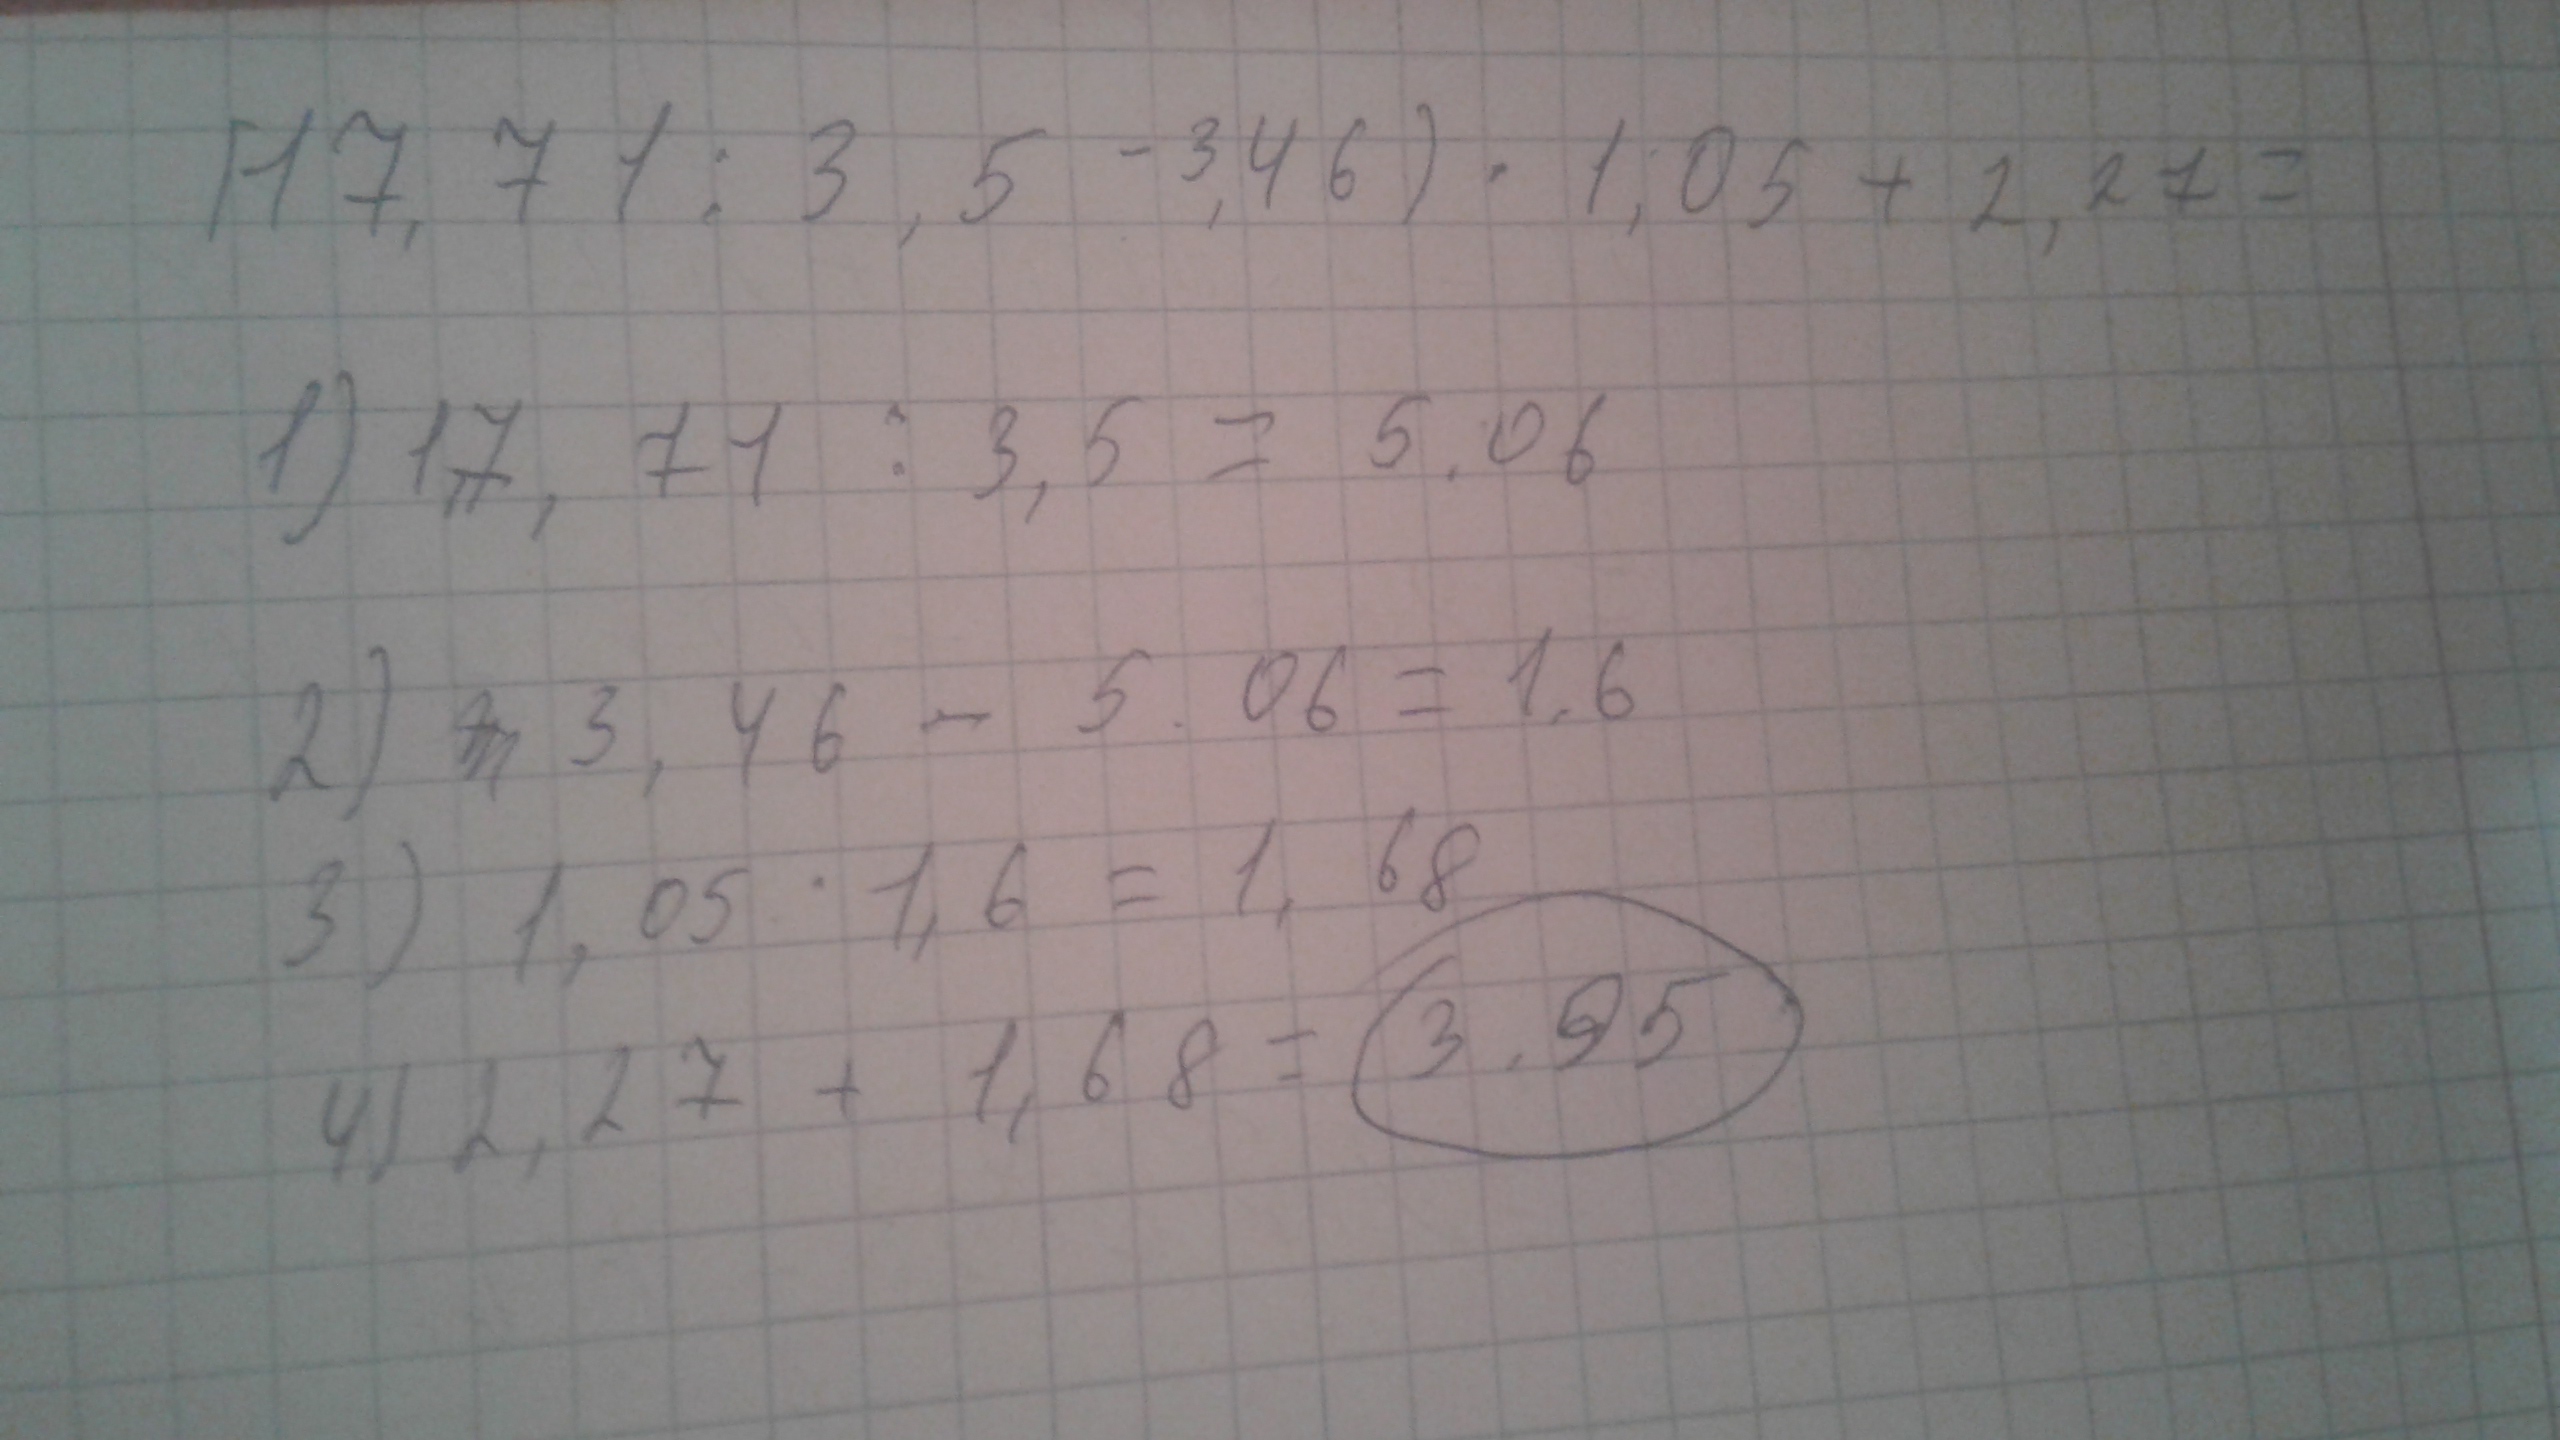 (17,71 : 3,5 - 3,46) · 1,05 + 2,27 =
1) 17,71 : 3,5 = 5.06
2) 3,46 - 5.06 = 1.6
3) 1,05 · 1,6 = 1,68
4) 2,27 + 1,68 = 3.95